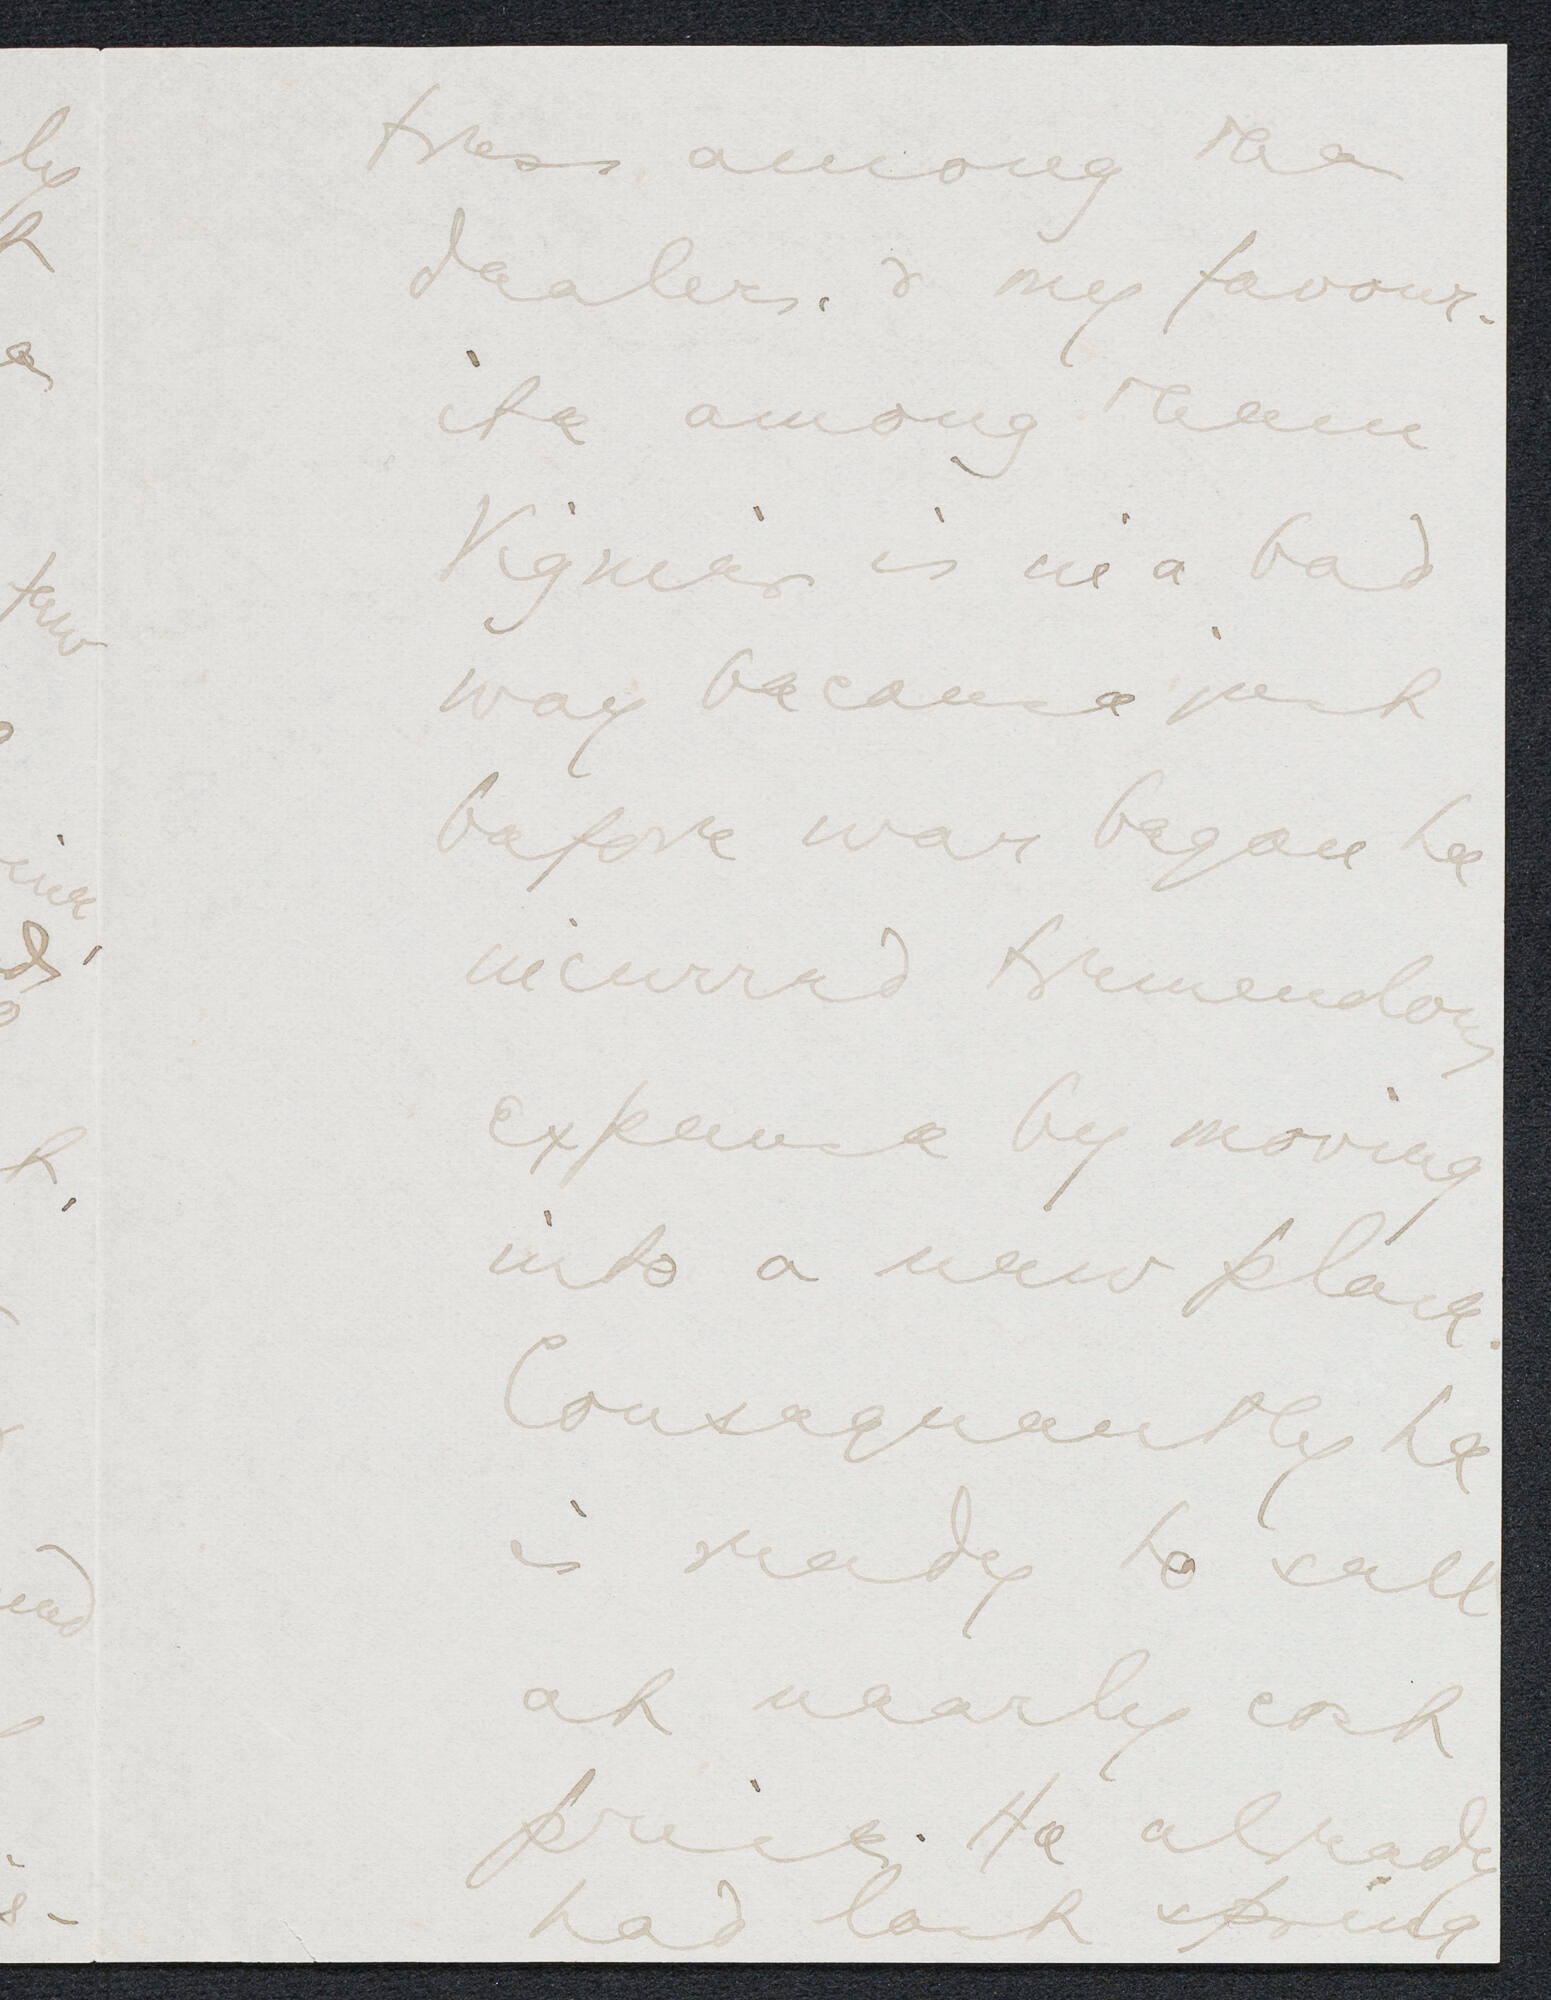 tress among the
dealers. & my favour-
ite among them
Vignier is in a bad
way because just
before war began he
incurred tremendous
expense by moving
into a new place.
Consequently he
is ready to sell
at nearly cost
price. He already
had last spring